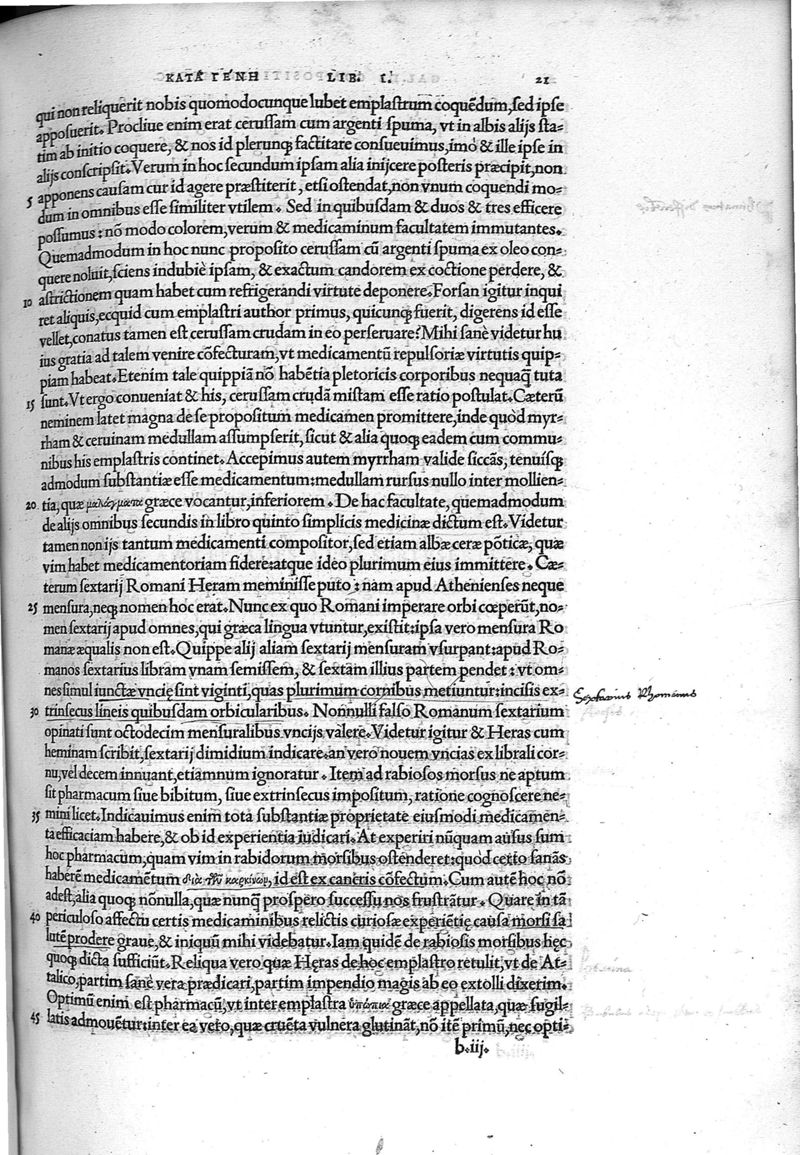 ΚΑΤᾺ ΓΈΝΗ LIB. I. 21
qui non reliquerit nobis quomodocunque lubet emplastrum coquēdum, sed ipse
apposuerit. Procliue enim erat cerussam cum argenti spuma, vt in albis alijs sta-
tim ab initio coquere, & nos id plerunq; factitare consueuimus, imò & ille ipse in
alijs conscripsit. Verum in hoc secundum ipsam alia inijcere posteris præcipit, non
5 apponens causam cur id agere præstiterit, etsi ostendat, non vnum coquendi mo-
dum in omnibus esse similiter vtilem. Sed in quibusdam & duos & tres efficere
possumus: nō modo colorem, verum & medicaminum facultatem immutantes.
Quemadmodum in hoc nunc proposito cerussam cū argenti spuma ex oleo con-
quere noluit, sciens indubiè ipsam, & exactum candorem ex coctione perdere, &
10 astrictionem quam habet cum refrigerādi virtute deponere. Forsan igitur inqui
ret aliquis, ecquid cum emplastri author primus, quicunq; fuerit, digerens id esse
vellet, conatus tamen est cerussam crudam in eo perseruare? Mihi sanè videtur hu
ius gratia ad talem venire cōfecturam, vt medicamentū repulsoriæ virtutis quip-
piam habeat. Etenim tale quippiā nō habētia pletoricis corporibus nequaq̄ tuta
15 sunt. Vt ergo conueniat & his, cerussam crudā mistam esse ratio postulat. Cæterū
neminem latet magna de se propositum medicamen promittere, inde quòd myr-
rham & ceruinam medullam assumpserit, sicut & alia quoq; eadem cum commu-
nibus his emplastris continet. Accepimus autem myrrham valide siccās, tenuisq;
admodum substantiæ esse medicamentum: medullam rursus nullo inter mollien-
20 tia, quæ μαλάγματα græce vocantur, inferiorem. De hac facultate, quemadmodum
de alijs omnibus secundis in libro quinto simplicis medicinæ dictum est. Videtur
tamen non ijs tantum medicamenti compositor, sed etiam albæ ceræ pōticæ, quæ
vim habet medicamentoriam fidere: atque ideo plurimum eius immittere. Cæ-
terum sextarij Romani Heram meminisse puto: nam apud Athenienses neque
25 mensura, neq; nomen hoc erat. Nunc ex quo Romani imperare orbi cœperūt, no-
men sextarij apud omnes, qui græca lingua vtuntur, existit: ipsa vero mensura Ro
manæ æqualis non est. Quippe alij aliam sextarij mensuram vsurpant: apud Ro-
manos sextarius libram vnam semissem, & sextam illius partem pendet: vt om-
nes simul iunctæ vncię sint viginti, quas plurimum cornibus metiuntur: incisis ex- Sextarius Rhomanus
30 trinsecus lineis quibusdam orbicularibus. Nonnulli falso Romanum sextarium
opinati sunt octodecim mensuralibus vncijs valere. Videtur igitur & Heras cum
heminam scribit, sextarij dimidium indicare. an vero nouem vncias ex librali cor-
nu, vel decem innuant, etiamnum ignoratur. Item ad rabiosos morsus ne aptum
sit pharmacum siue bibitum, siue extrinsecus impositum, ratione cognoscere ne-
35 mini licet. Indicauimus enim tota substantiæ proprietate eiusmodi medicamen-
ta efficaciam habere, & ob id experientia iudicari. At experiri nūquam ausus sum
hoc pharmacum, quam vim in rabidorum morsibus ostenderet: quòd certo sanās
haberē medicamētum διὰ τῶν καρκίνων, id est ex cancris cōfectum. Cum autē hoc nō
adest, alia quoq; nōnulla, quæ nunq̄ prospero successu nos frustrātur. Quare in tā
40 periculoso affectu certis medicaminibus relictis curiosæ experiētię causa morsi sa
lutē prodere graue, & iniquū mihi videbatur. Iam quidē de rabiosis morsibus hęc
quoq; dicta sufficiūt. Reliqua vero quæ Hęras de hoc emplastro retulit, vt de At-
talico, partim sanè vera prædicari, partim impendio magis ab eo extolli dixerim.
Optimū enim est pharmacū, vt inter emplastra ὑπώπια græce appellata, quæ sugil-
45 latis admouētur: inter ea vero, quæ cruēta vulnera glutināt, nō itē primū, nec opti-
b.iij.